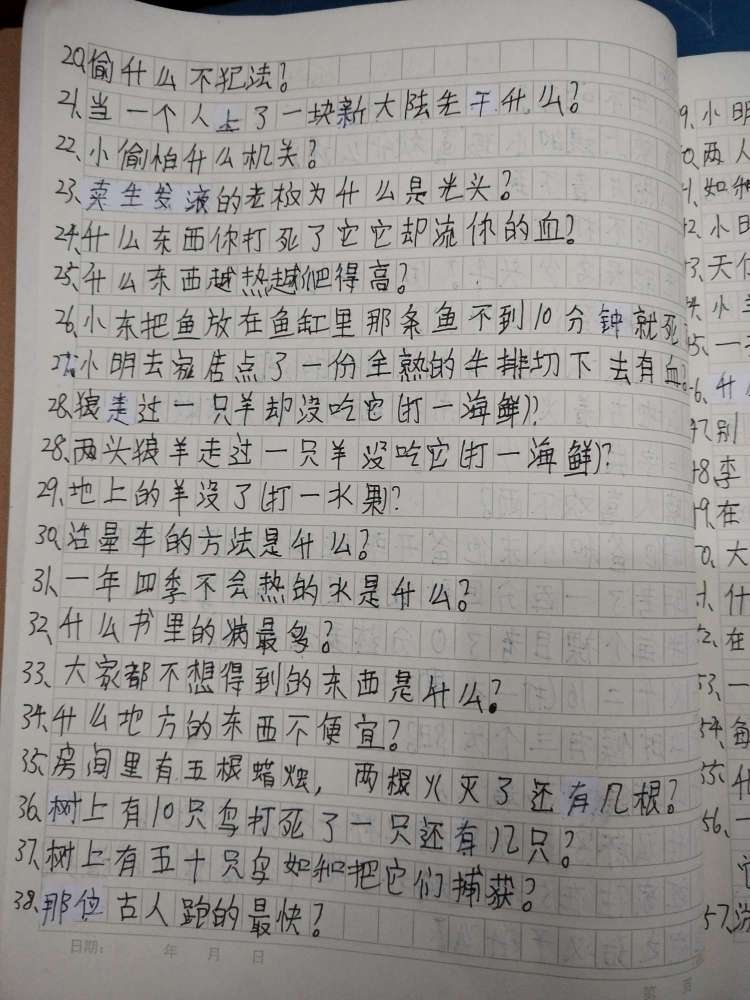 20、偷什么不犯法?
21、当一个人上了一块新大陆先干什么?
22、小偷怕什么机关?
23、卖生发液的老板为什么是光头?
24、什么东西你打死了它它却流你的血?
25、什么东西越热越爬得高?
26、小东把鱼放在鱼缸里那条鱼不到10分钟就死
27、小明去 店点了一份全熟的牛排切下去有血?
28、狼走过一只羊却没吃它(打一海鲜)?
28、两头狼羊走过一只羊没吃它(打一海鲜)?
29、地上的羊没了(打一水果)?
30、 量车的方法是什么?
31、一年四季不会热的水是什么?
32、什么书里的病最多?
33、大家都不想得到的东西是什么?
34、什么地方的东西不便宜?
35、房间里有五根蜡烛,两根火灭了还有几根?
36、树上有10只鸟打死了一只还有几只?
37、树上有五十只鸟如和把它们捕获?
38、那位古人跑的最快?
日期: 年 月 日
9、小明
0、两人
1、如和
42、小日
43、天
小
45、一
6、什
47、别
48、李
49、在
50、大
什
52、在
53、一
54、每
55、什
56、一
它
57、
第 页